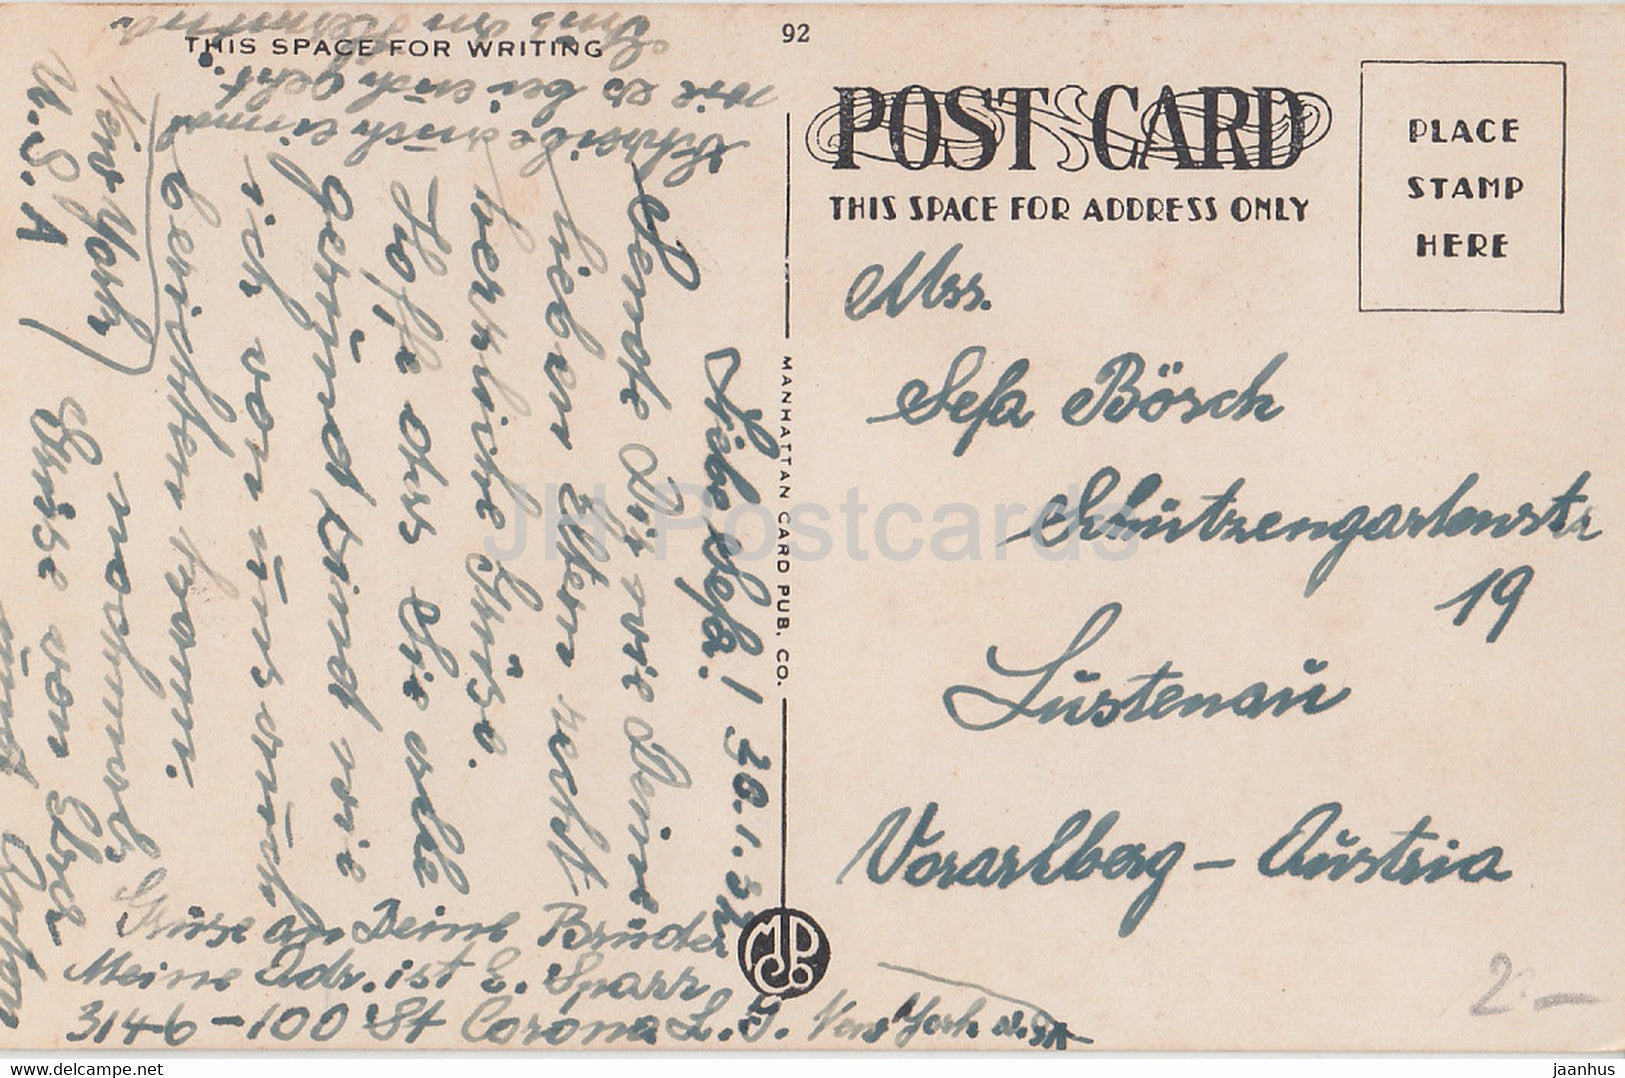 THIS SPACE FOR WRITING
92
POST CARD
THIS SPACE FOR ADDRESS ONLY
PLACE
STAMP
HERE
MANHATTAN CARD PUB. CO.
Liebe Sefa! 30.1.37
Sende Dir wie Deine
lieben Eltern recht
herzliche Grüse.
Hoffe dass Sie alle
gesund sind wie
ich von uns auch
berichten kann.
nochmals
Grüse von
Grüse an Deine Brüder
Meine Adr. ist E. Sparr
3146-100 St Corona L. I. New York U.S.A
New York
U.S.A
Schreibe auch einmal
wie es bei euch geht.
Mss.
Sefa Bösch
Schützengartenstr
19
Lustenau
Vorarlberg - Austria
2.-
JH Postcards
delcampe.net
jaanhus